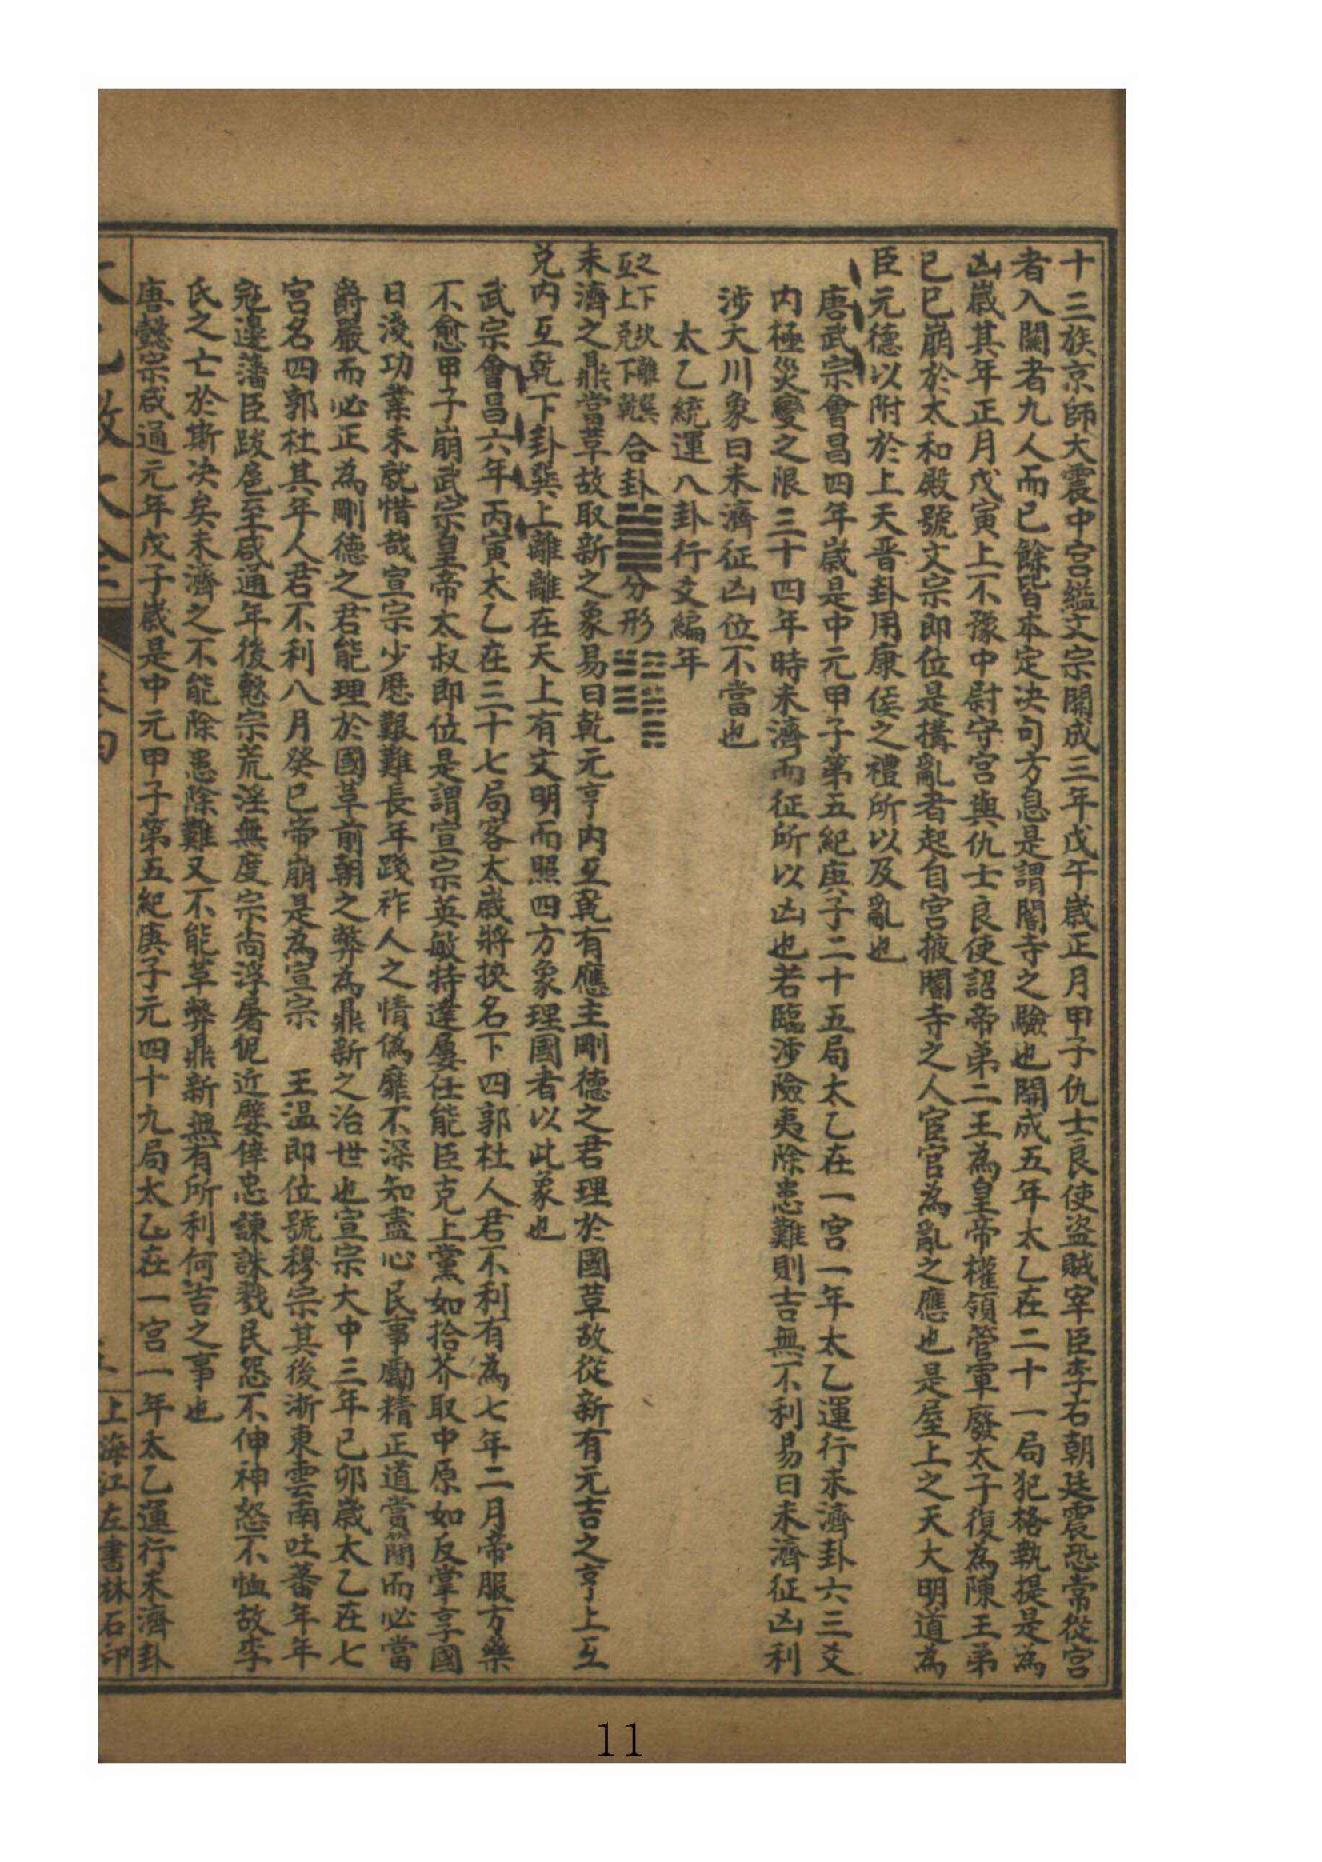 十三族京師大震中宮鑑文宗開成三年戊午歲正月甲子仇士良使盜賊宰臣李右朝廷震恐常從宮
者入闕者九人而已餘皆本定決句方息是謂閽寺之驗也開成五年太乙在二十一局犯格執提是為
凶歲其年正月戊寅上不豫中尉守宮與仇士良使詔帝弟二王為皇帝權領管軍廢太子復為陳王弟
已巳崩於太和殿號文宗即位是構亂者起自宮掖閽寺之人宦官為亂之應也是屋上之天大明道為
臣元德以附於上天晉卦用康侯之禮所以及亂也
唐武宗會昌四年歲是中元甲子第五紀庚子二十五局太乙在一宮一年太乙運行未濟卦六三爻
內極災變之限三十四年時未濟而征所以凶也若臨涉險夷除患難則吉無不利易曰未濟征凶利
涉大川象曰未濟征凶位不當也
太乙統運八卦行爻編年
之下坎離巽
互上兌下乾合卦 分形
未濟之鼎當革故取新之象易曰乾元亨內互乾有應主剛德之君理於國革故從新有元吉之亨上互
兌內互乾下卦巽上離離在天上有文明而照四方象理國者以此象也
武宗會昌六年丙寅太乙在三十七局客太歲將挾名下四郭杜人君不利有為七年二月帝服方藥
不愈甲子崩武宗皇帝太叔即位是謂宣宗英敏特達屢任能臣克上黨如拾芥取中原如反掌享國
日淺功業未就惜哉宣宗少歷艱難長年踐祚人之情偽靡不深知盡心民事勵精正道賞簡而必當
爵嚴而必正為剛德之君能理於國革前朝之弊為鼎新之治世也宣宗大中三年己卯歲太乙在七
宮名四郭杜其年人君不利八月癸巳帝崩是為宣宗 王溫即位號穆宗其後浙東雲南吐蕃年年
寇邊藩臣跋扈至咸通年後懿宗荒淫無度宗尚浮屠昵近嬖倖忠諫誅戮民怨不伸神怒不恤故李
氏之亡於斯決矣未濟之不能除患除難又不能革弊鼎新無有所利何吉之事也
唐懿宗咸通元年戊子歲是中元甲子第五紀庚子元四十九局太乙在一宮一年太乙運行未濟卦
上海江左書林石印
11